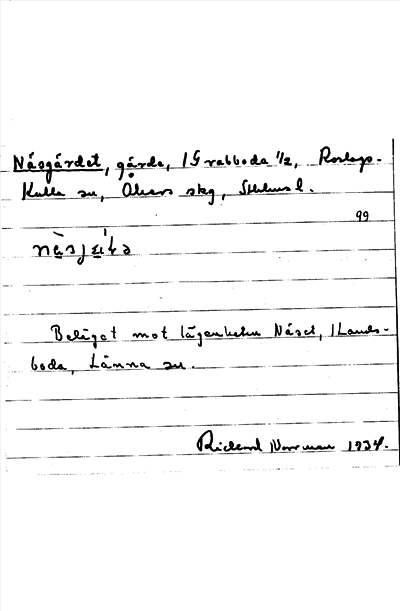 Näsgärdet, gärde, 1 Grabboda 1/2, Roslags-
Kulla sn, Åkers skg, Sthlms l.
99
Beläget mot lägenheten Näset, 1 Lands-
boda, Länna sn.
Rickard Norrman 1934.